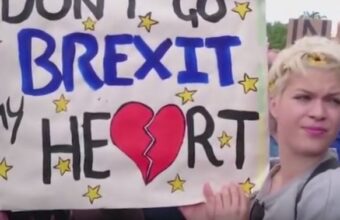 DON'T GO
BREXIT
MY
HE RT
IN